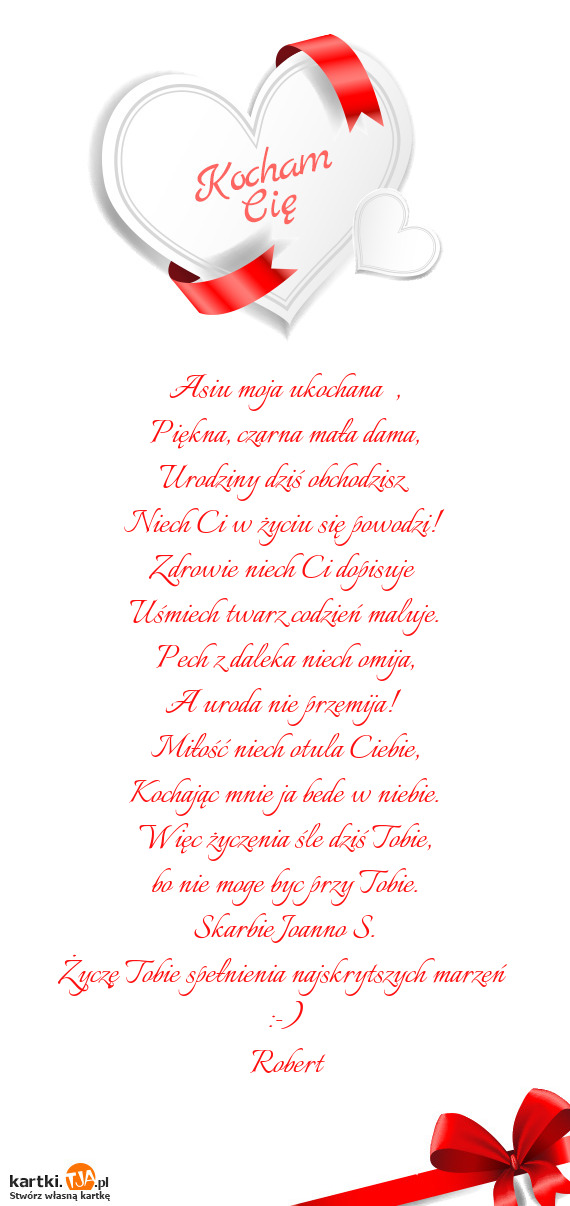 Kocham
Cię
Asiu moja ukochana ,
Piękna, czarna mała dama,
Urodziny dziś obchodzisz
Niech Ci w życiu się powodzi!
Zdrowie niech Ci dopisuje
Uśmiech twarz codzień maluje.
Pech z daleka niech omija,
A uroda nie przemija!
Miłość niech otula Ciebie,
Kochając mnie ja bede w niebie.
Więc życzenia śle dziś Tobie,
bo nie moge byc przy Tobie.
Skarbie Joanno S.
Życzę Tobie spełnienia najskrytszych marzeń
:-)
Robert
kartki.TJA.pl
Stwórz własną kartkę